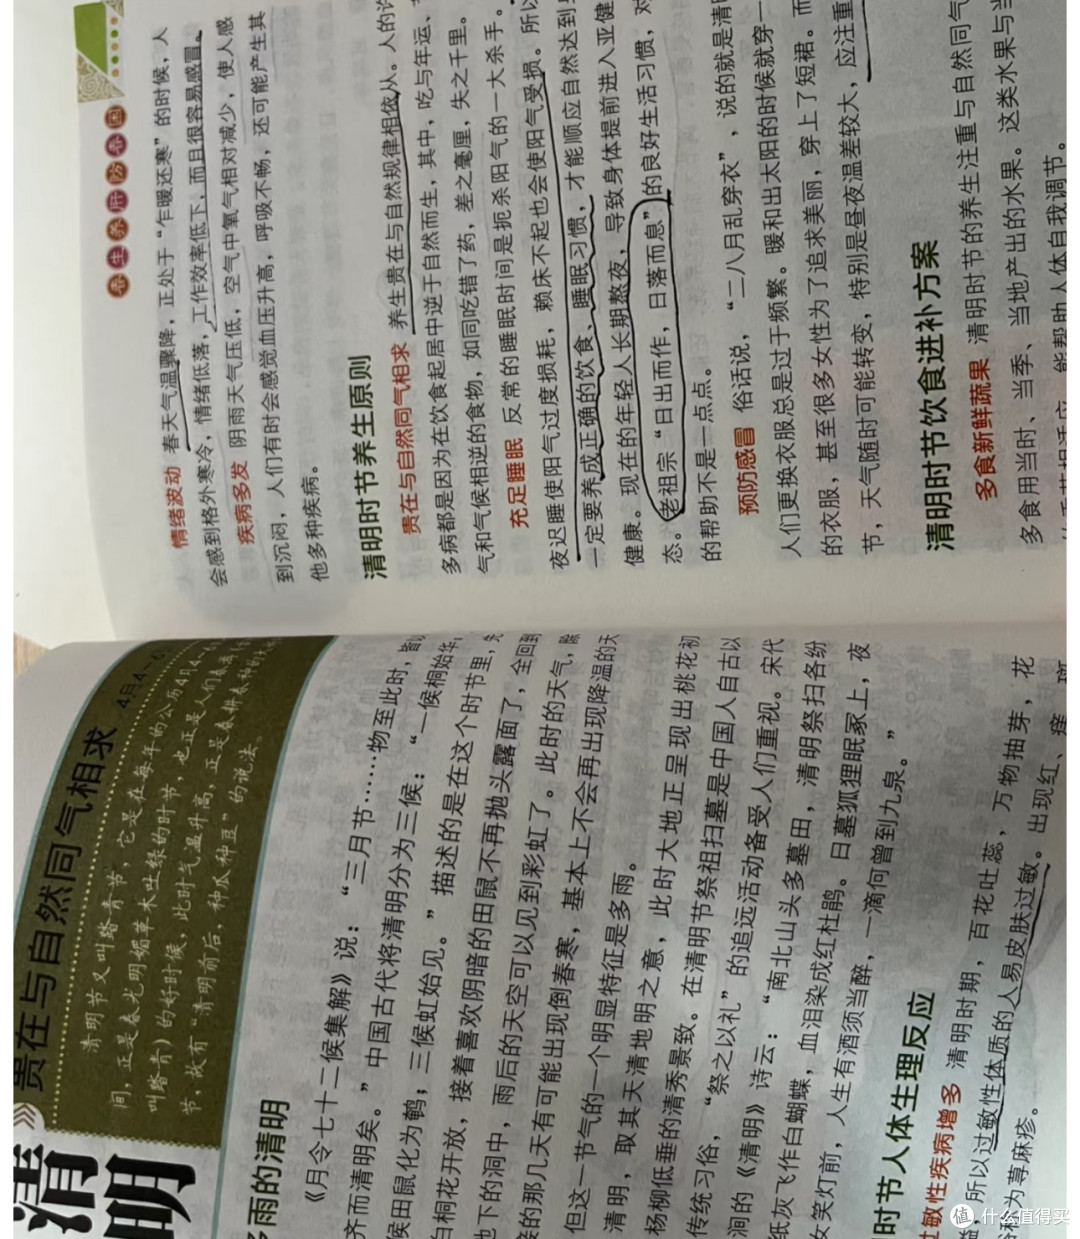 清明
贵在与自然同气相求
4月4~6
清明节又叫踏青节，它是在每年的公历4月4
间，正是春光明媚草木吐绿的时节，也正是人们春游
叫踏青）的好时候，此时气温升高，正是春耕春种的
节，故有“清明前后，种瓜种豆”的说法。
多雨的清明
《月令七十二候集解》说：“三月节……物至此时，皆以
齐而清明矣。”中国古代将清明分为三候：“一候桐始华；
候田鼠化为鹌；三候虹始见。”描述的是在这个时节里，先
白桐花开放，接着喜欢阴暗的田鼠不再抛头露面了，全回到
地下的洞中，雨后的天空可以见到彩虹了。此时的天气，除
接的那几天有可能出现倒春寒，基本上不会再出现降温的天
但这一节气的一个明显特征是多雨。
清明，取其天清地明之意，此时大地正呈现出桃花初
杨柳低垂的清秀景致。在清明节祭祖扫墓是中国人自古以
传统习俗，“祭之以礼”的追远活动备受人们重视。宋代
涧的《清明》诗云：“南北山头多墓田，清明祭扫各纷
纸灰飞作白蝴蝶，血泪染成红杜鹃。日墓狐狸眠冢上，夜
女笑灯前，人生有酒须当醉，一滴何曾到九泉。”
时节人体生理反应
过敏性疾病增多 清明时期，百花吐蕊，万物抽芽，花
溢，所以过敏性体质的人易皮肤过敏。出现红、痒、斑
俗称为荨麻疹。
春生养肝防春困
情绪波动 春天气温骤降，正处于“乍暖还寒”的时候，人
会感到格外寒冷，情绪低落，工作效率低下，而且很容易感冒。
疾病多发 阴雨天气压低，空气中氧气相对减少，使人感
到沉闷，人们有时会感觉血压升高，呼吸不畅，还可能产生其
他多种疾病。
清明时节养生原则
贵在与自然同气相求 养生贵在与自然规律相依从。人的许
多病都是因为在饮食起居中逆于自然而生，其中，吃与年运、
气和气候相逆的食物，如同吃错了药，差之毫厘，失之千里。
充足睡眠 反常的睡眠时间是扼杀阳气的一大杀手。
夜迟睡使阳气过度损耗，赖床不起也会使阳气受损。所以
一定要养成正确的饮食、睡眠习惯，才能顺应自然达到
健康。现在的年轻人长期熬夜，导致身体提前进入亚健
态。老祖宗“日出而作，日落而息”的良好生活习惯，对
的帮助不是一点点。
预防感冒 俗话说，“二八月乱穿衣”，说的就是清明
人们更换衣服总是过于频繁。暖和出太阳的时候就穿一
的衣服，甚至很多女性为了追求美丽，穿上了短裙。而
节，天气随时可能转变，特别是昼夜温差较大，应注重
清明时节饮食进补方案
多食新鲜蔬果 清明时节的养生注重与自然同气
多食用当时、当季、当地产出的水果。这类水果与当
能帮助人体自我调节。
值 什么值得买